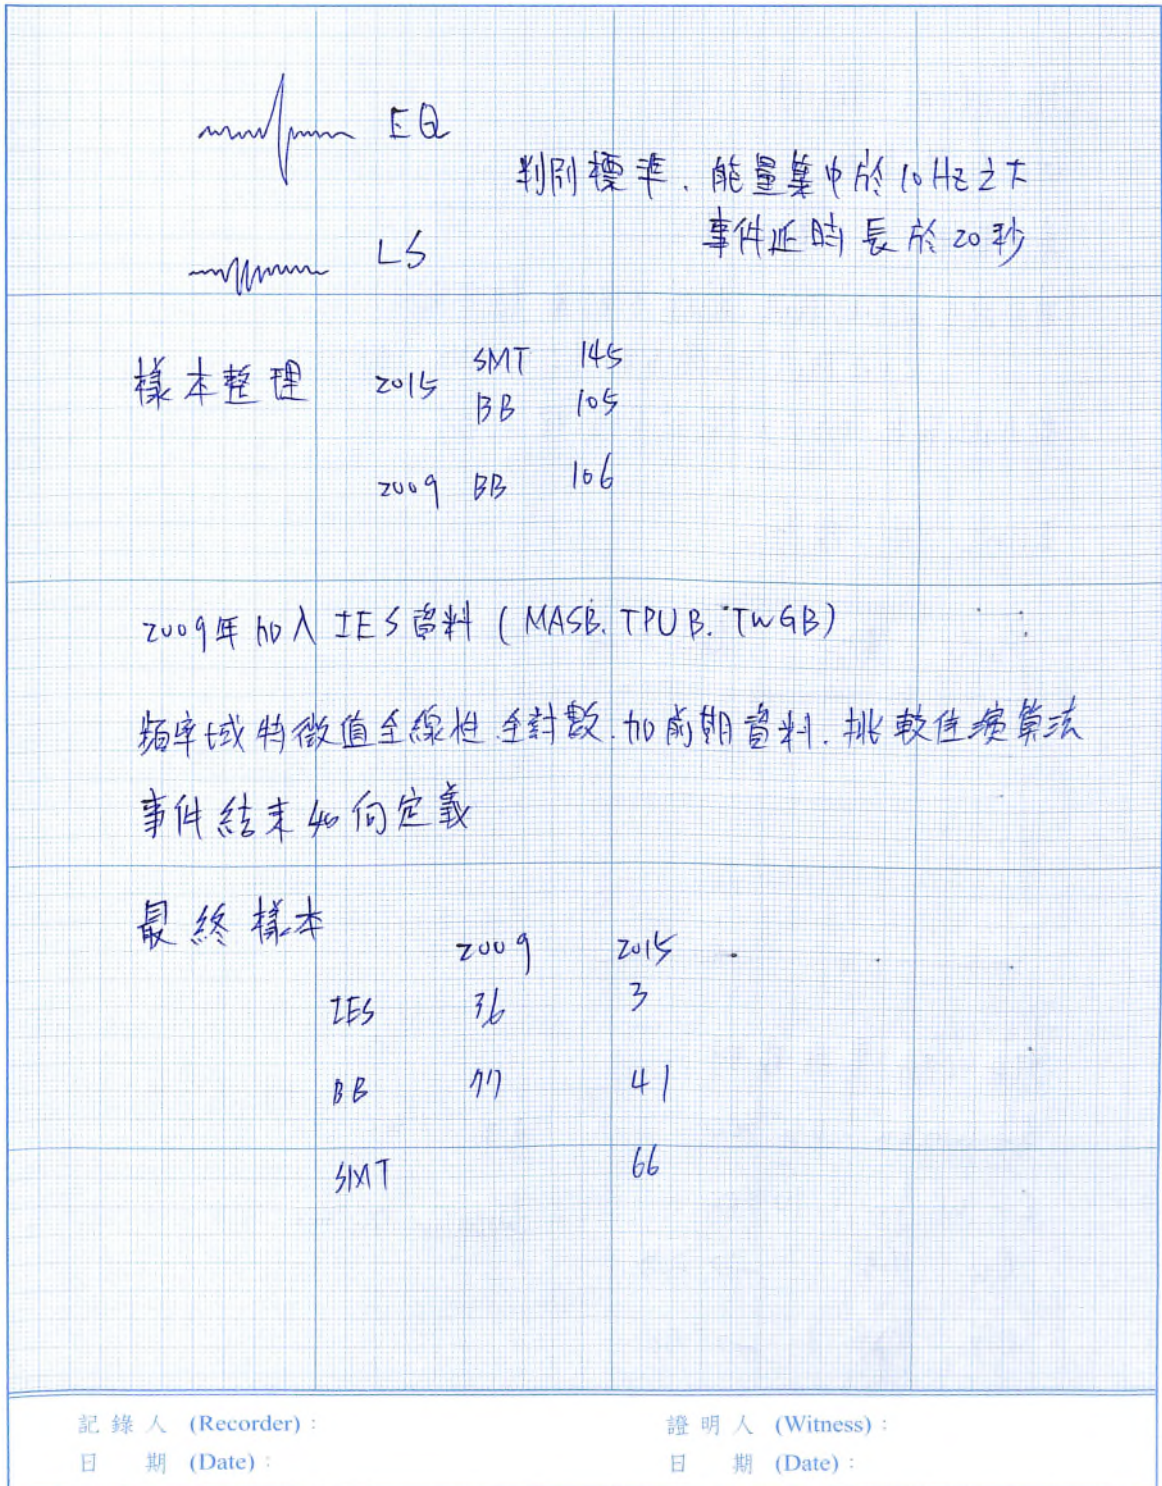 EQ
判別標準、能量集中於10Hz之下
事件延時長於20秒
LS
樣本整理 2015 SMT 145
BB 105
2009 BB 106
2009年加入IES資料 (MASB. TPUB. TWGB)
頻率域特徵值全線性 全對數.加前期資料.挑較佳演算法
事件結束如何定義
最終樣本
2009 2015
IES 36 3
BB 77 41
SMT 66
記錄人 (Recorder):
證明人 (Witness):
日 期 (Date):
日 期 (Date):